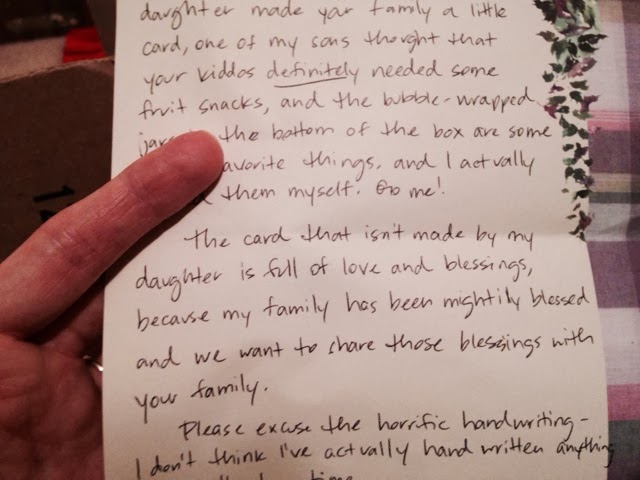 daughter made your family a little
card, one of my sons thought that
your kiddos definitely needed some
fruit snacks, and the bubble-wrapped
the bottom of the box are some
things, and I actually
them myself. Go me!
The card that isn't made by my
daughter is full of love and blessings,
because my family has been mightily blessed
and we want to share those blessings with
your family.
Please excuse the horrific handwriting-
I don't think I've actually hand written anything
time